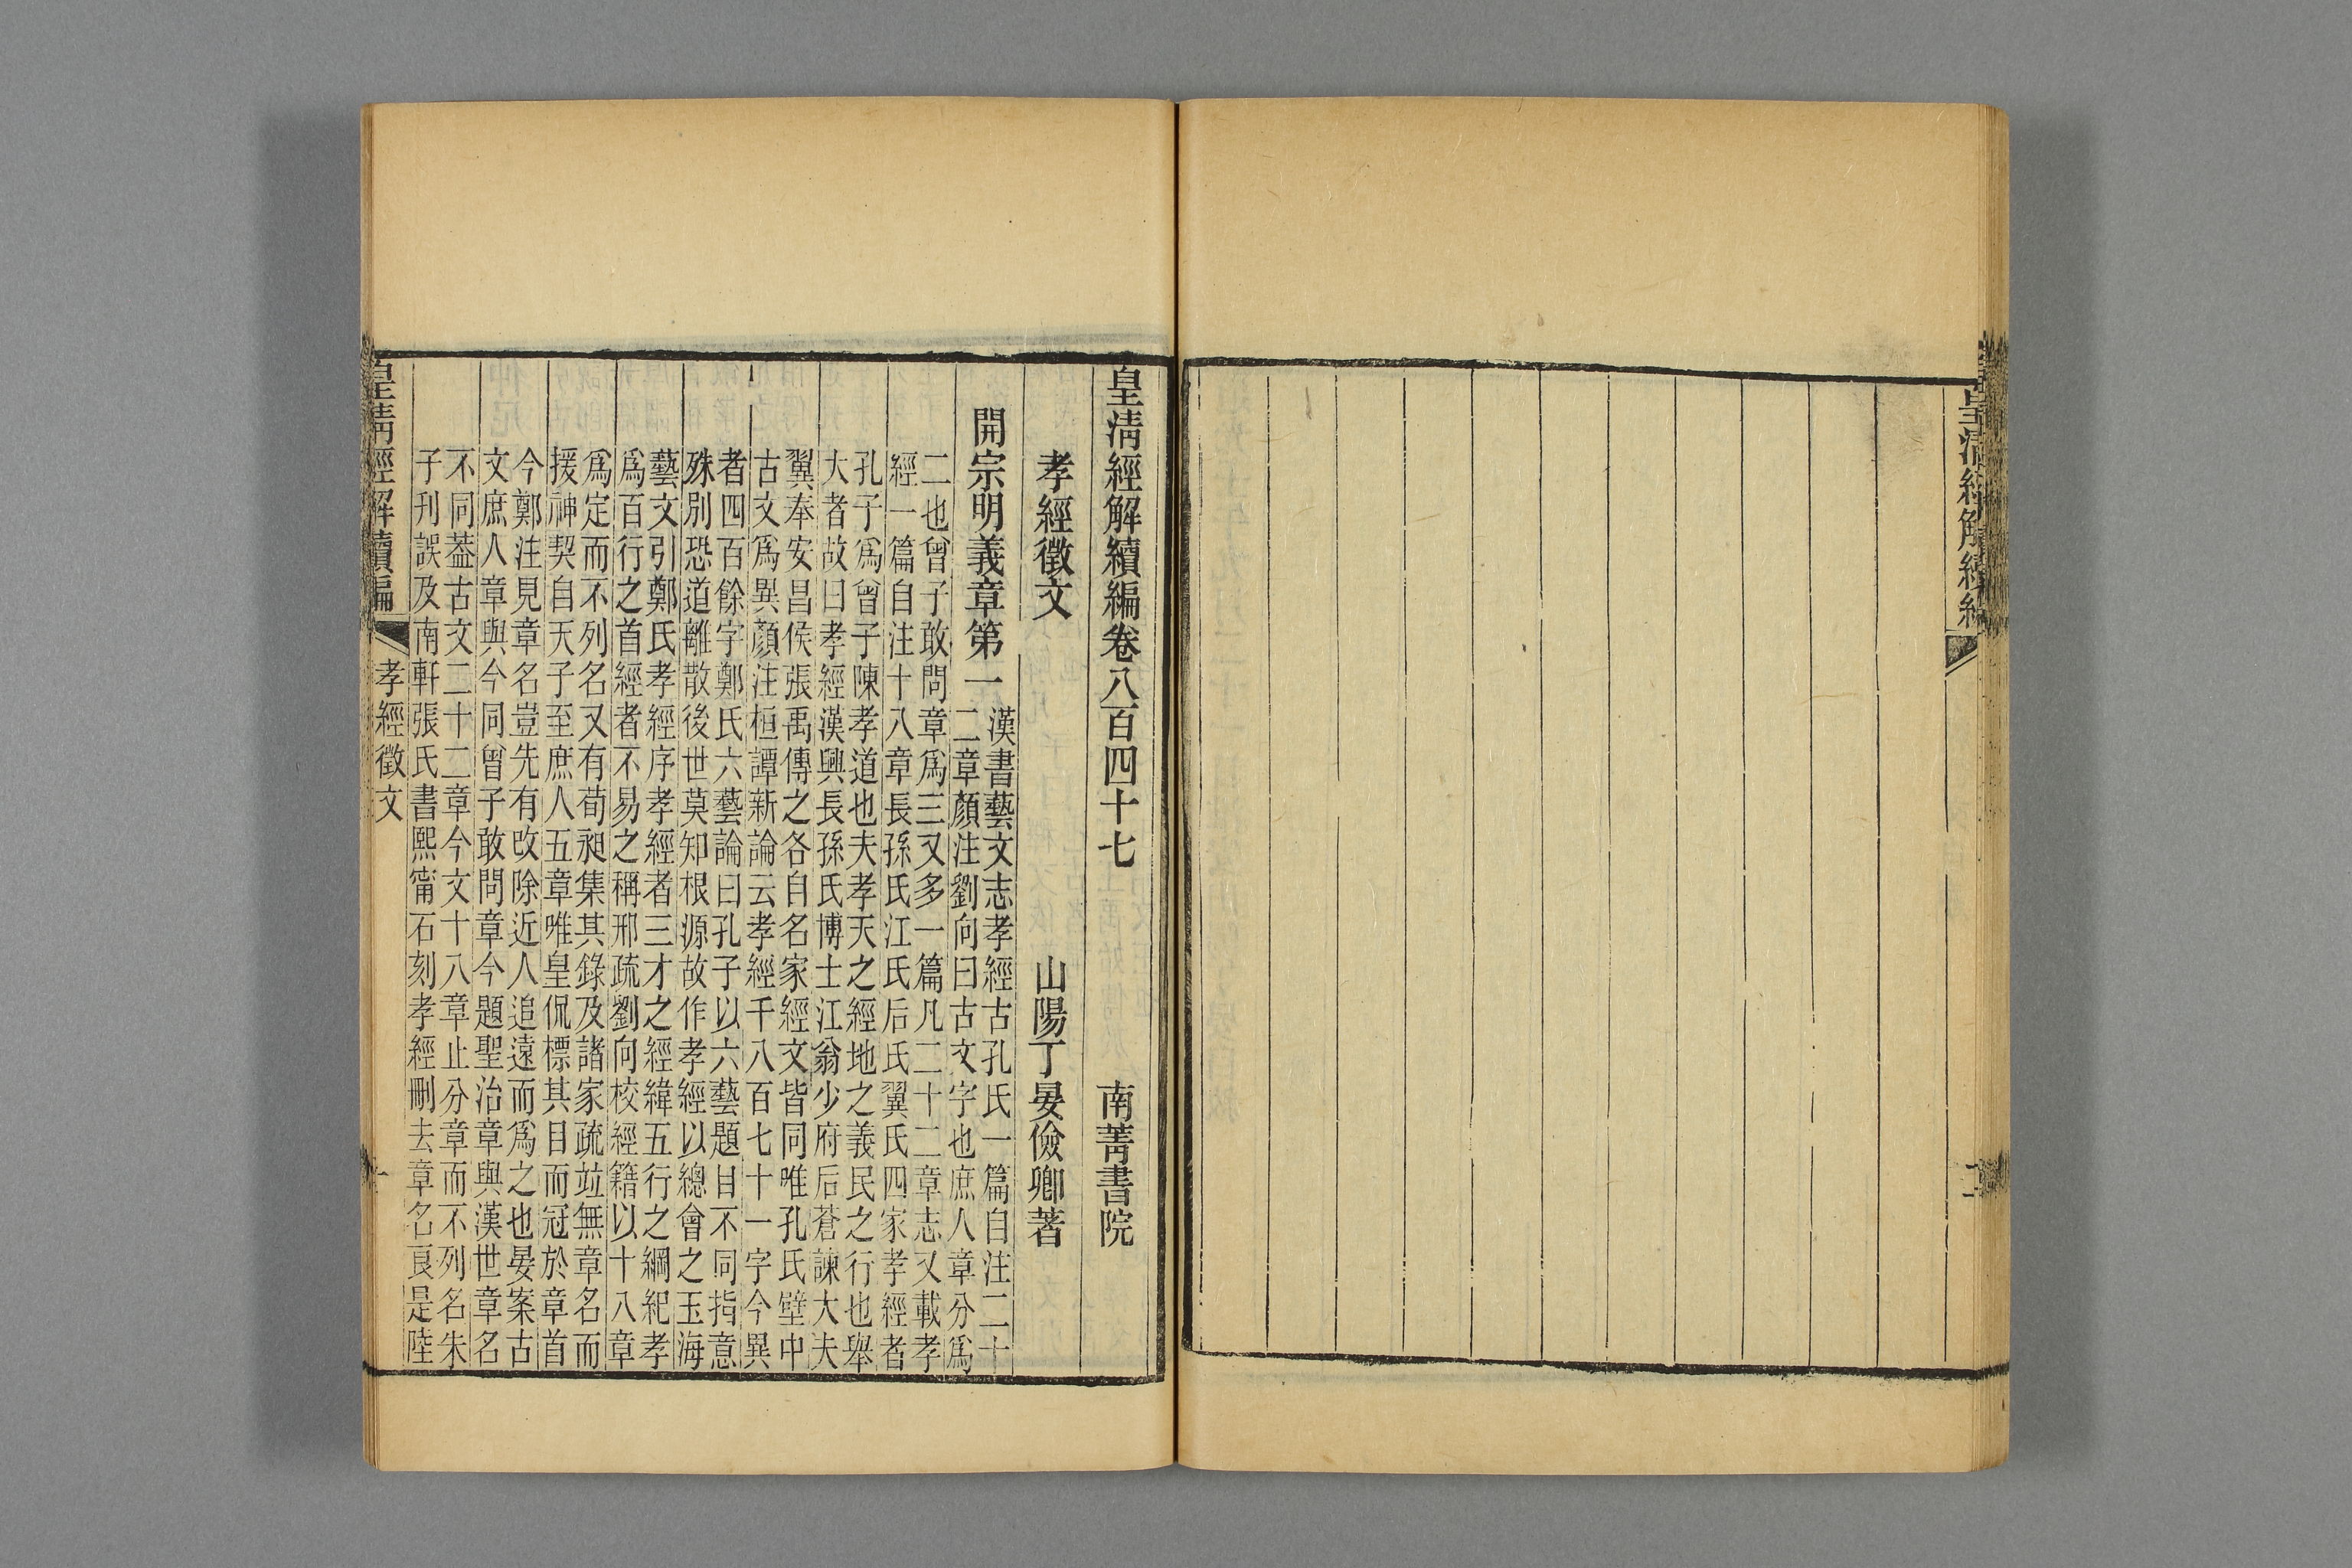 皇清經解續編
二
皇清經解續編卷八百四十七
南菁書院
孝經徵文
山陽丁晏儉卿著
開宗明義章第一
漢書藝文志孝經古孔氏一篇自注二十
二章顏注劉向曰古文字也庶人章分爲
二也曾子敢問章爲三又多一篇凡二十二章志又載孝
經一篇自注十八章長孫氏江氏后氏翼氏四家孝經者
孔子爲曾子陳孝道也夫孝天之經地之義民之行也舉
大者故曰孝經漢興長孫氏博士江翁少府后蒼諫大夫
翼奉安昌侯張禹傳之各自名家經文皆同唯孔氏壁中
古文爲異顏注桓譚新論云孝經千八百七十一字今異
者四百餘字鄭氏六藝論曰孔子以六藝題目不同指意
殊別恐道離散後世莫知根源故作孝經以總會之玉海
藝文引鄭氏孝經序孝經者三才之經緯五行之綱紀孝
爲百行之首經者不易之稱邢疏劉向校經籍以十八章
爲定而不列名又有荀昶集其錄及諸家疏竝無章名而
援神契自天子至庶人五章唯皇侃標其目而冠於章首
今鄭注見章名豈先有改除近人追遠而爲之也晏案古
文庶人章與今同曾子敢問章今題聖治章與漢世章名
不同葢古文二十二章今文十八章止分章而不列名朱
子刊誤及南軒張氏書熙甯石刻孝經刪去章名良是陸
皇清經解續編
孝經徵文
一